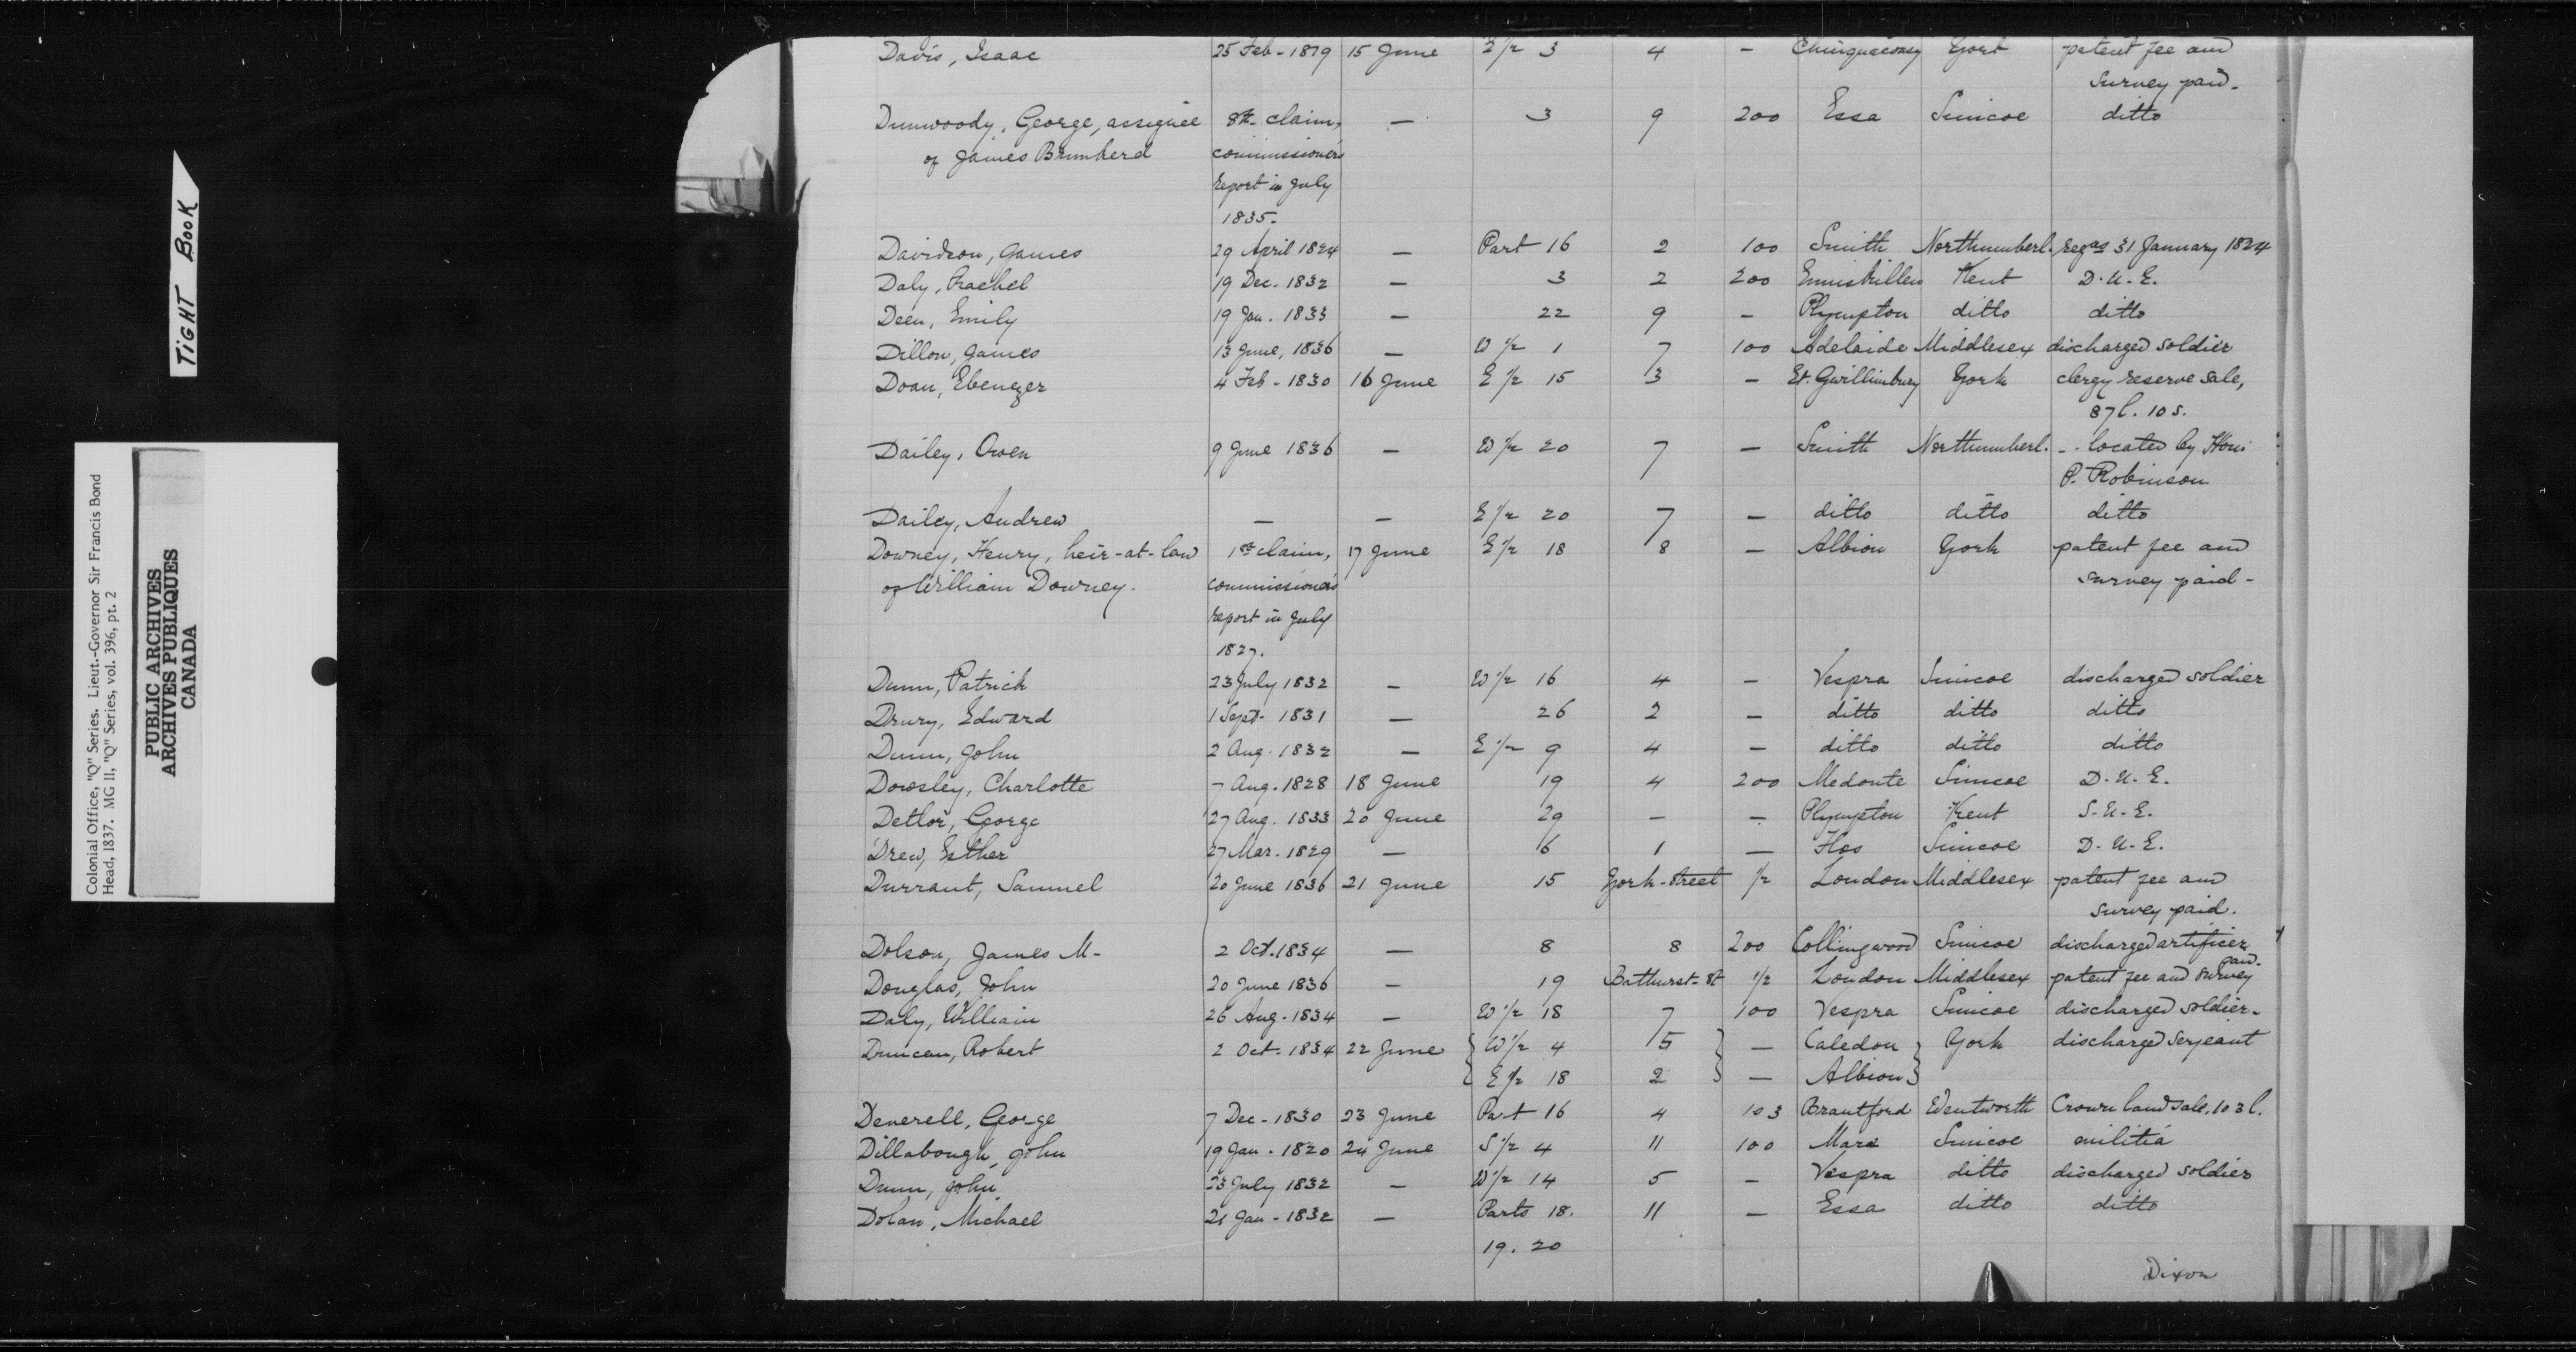 TIGHT BOOK
Colonial Office, "Q" Series. Lieut.-Governor Sir Francis Bond
Head, 1837. MG 11, "Q" Series, vol. 396, pt. 2
PUBLIC ARCHIVES
ARCHIVES PUBLIQUES
CANADA
Davis, Isaac 25 Feb - 1819 15 June E 1/2 3 4 - Chinguacousy York patent fee and
survey paid.
Dunwoody, George, assignee 8th claim, - 3 9 200 Essa Simcoe ditto
of James Brumherd commissioners
report in July
1835.
Davidson, James 29 April 1824 - Part 16 2 100 Smith Northumberl. regns 31 January 1824
Daly, Rachel 19 Dec. 1832 - 3 2 200 Enniskillen Kent D. U. E.
Deen, Emily 19 Jan. 1833 - 22 9 - Plympton ditto ditto
Dillon, James 13 June, 1836 - W 1/2 1 7 100 Adelaide Middlesex discharged soldier
Doan, Ebenezer 4 Feb - 1830 16 June E 1/2 15 3 - Et. Gwillimbury York clergy reserve sale,
87 l. 10 s.
Dailey, Owen 9 June 1836 - W 1/2 20 7 - Smith Northumberl. - located by Hon:
P. Robinson
Dailey, Andrew - - E 1/2 20 7 - ditto ditto ditto
Downey, Henry, heir-at-law 1st claim, 17 June E 1/2 18 8 - Albion York patent fee and
of William Downey. commissioners survey paid -
report in July
1827.
Dunn, Patrick 23 July 1832 - W 1/2 16 4 - Vespra Simcoe discharged soldier
Drury, Edward 1 Sept - 1831 - 26 2 - ditto ditto ditto
Dunn, John 2 Aug. 1832 - E 1/2 9 4 - ditto ditto ditto
Dowsley, Charlotte 7 Aug. 1828 18 June 19 4 200 Medonte Simcoe D. U. E.
Detlor, George 27 Aug. 1833 20 June 29 - - Plympton Kent S. U. E.
Drew, Esther 27 Mar. 1829 - 16 1 - Flos Simcoe D. U. E.
Durrant, Samuel 20 June 1836 21 June 15 York-street 1/2 London Middlesex patent fee and
survey paid.
Dolson, James M - 2 Oct. 1834 - 8 8 200 Collingwood Simcoe discharged artificer
Douglas, John 20 June 1836 - 19 Bathurst-st 1/2 London Middlesex patent fee and survey paid.
Daly, William 26 Aug - 1834 - W 1/2 18 7 100 Vespra Simcoe discharged soldier.
Duncan, Robert 2 Oct. 1834 22 June { W 1/2 4 5 } - Caledon } York discharged serjeant
{ E 1/2 18 2 } - Albion }
Deverell, George 7 Dec - 1830 23 June Part 16 4 103 Brantford Wentworth Crown land sale, 103 l.
Dillabough, John 19 Jan - 1820 24 June S 1/2 4 11 100 Mara Simcoe militia
Dunn, John 23 July 1832 - W 1/2 14 5 - Vespra ditto discharged soldier
Dolan, Michael 21 Jan - 1832 - Parts 18. 11 - Essa ditto ditto
19. 20
Dixon